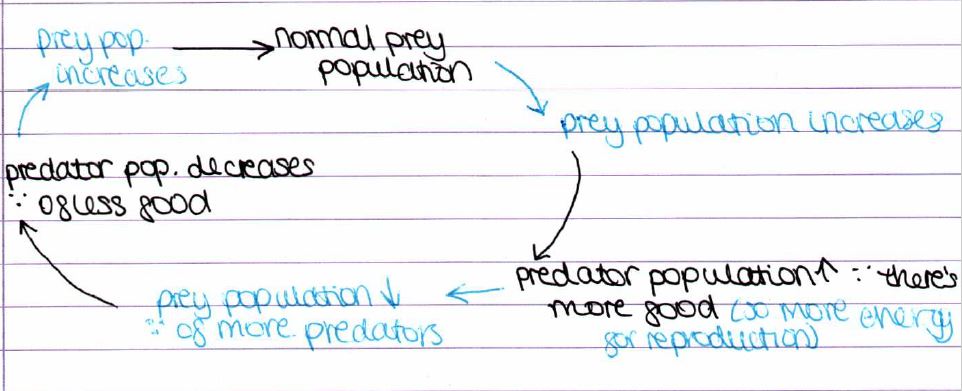 prey pop.
increases
normal prey
population
prey population increases
predator population↑ ∵ there's
more food (so more energy
for reproduction)
prey population ↓
∵ of more predators
predator pop. decreases
∵ of less food